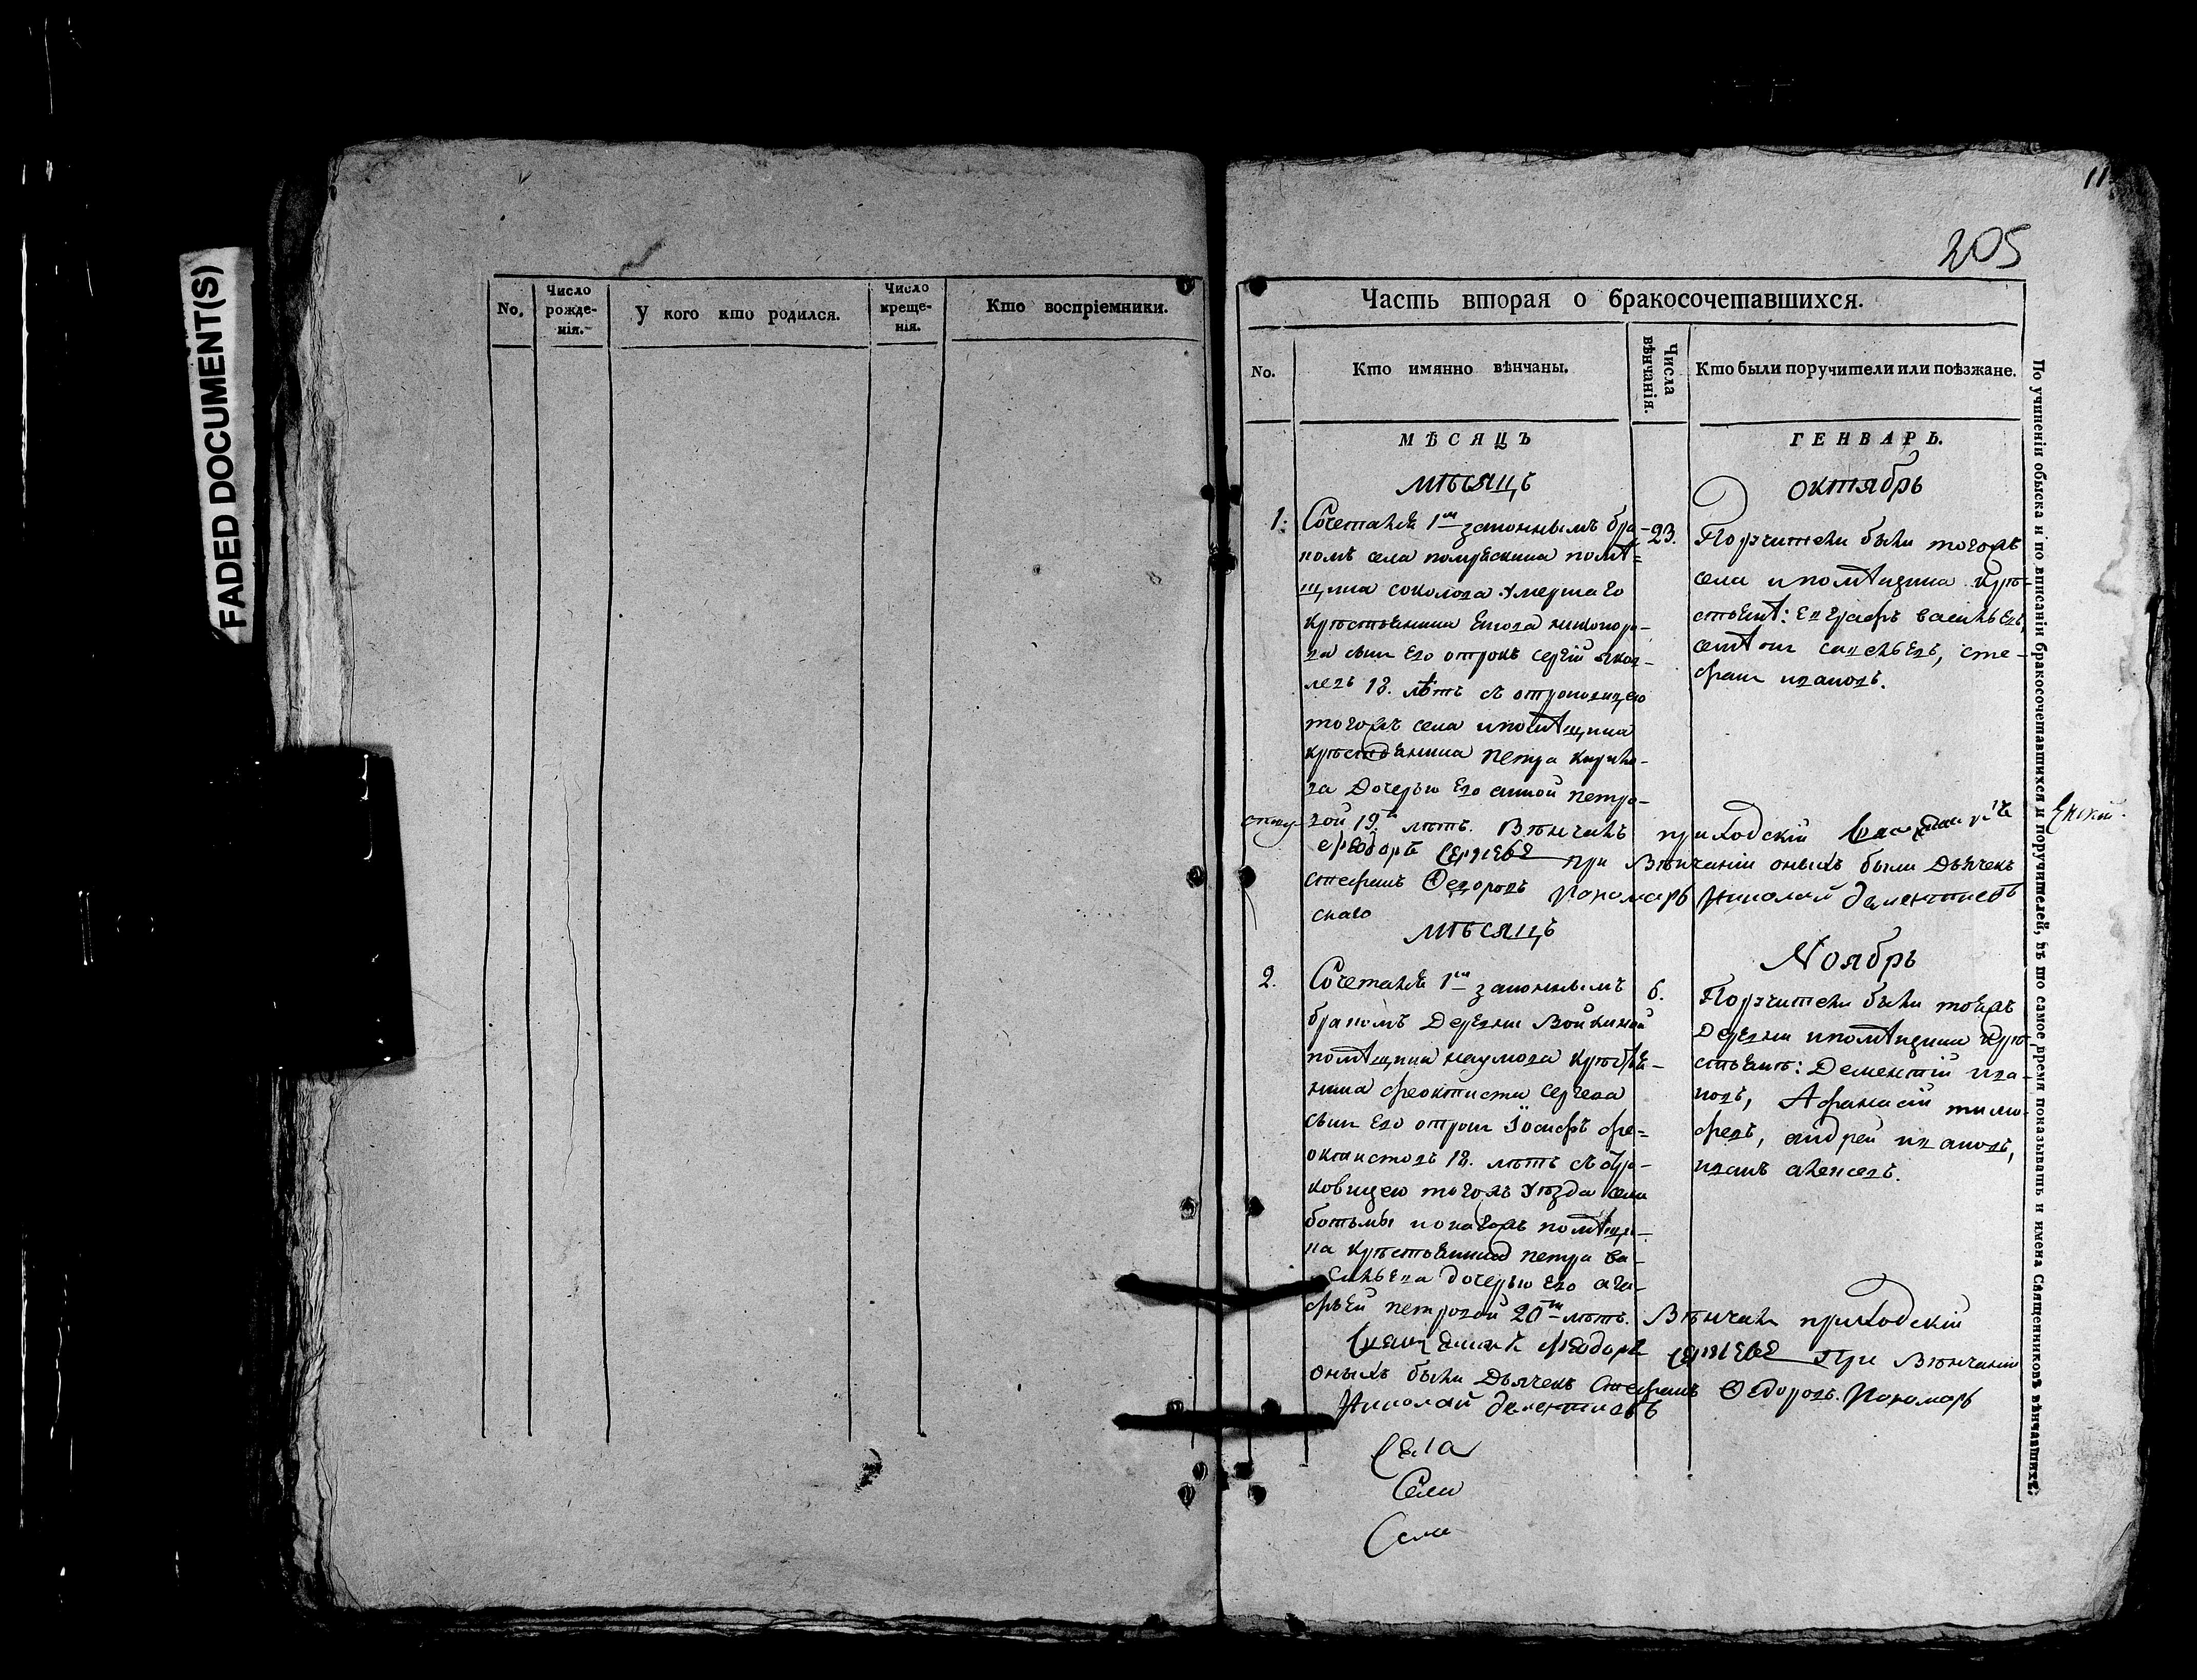 FADED DOCUMENT(S)
No.
Число рожде-нія.
У кого кто родился.
Число креще-нія.
Кто воспріемники.
11
205
Часть вторая о бракосочетавшихся.
No.
Кто имянно вѣнчаны.
Числа вѣнчанія.
Кто были поручители или поѣзжане.
МѢСЯЦЪ
ГЕНВАРЬ.
мѣсяцъ
октябрь
1.
Сочетанъ 1м законнымъ бра-
комъ села помѣ-
щика соколова умершаго
крестьянина
сынъ его отрокъ сергій яков-
левъ 18. лѣтъ съ отроковицею
тогожъ села и помѣщика
крестьянина петра кирил-
ва дочерью его анной петро-
вой 19. лѣтъ. Вѣнчалъ приходскій
феодоръ Сергѣевъ при вѣнчаніи оныхъ были дьячекъ
стефанъ Федоровъ Пономарь Николай дементиевъ
23.
Поручители были тогожъ
села и помѣщика кре-
стьяне: Евграфъ васильевъ,
сте-
фанъ ивановъ.
мѣсяцъ
Ноябрь
2.
Сочетанъ 1м законнымъ
бракомъ Деревни Войкиной
помѣщика наумова крестья-
нина феоктиста Сергева
сынъ его отрокъ Іосифъ фе-
октистовъ 18. лѣтъ съ отро-
ковицею тогожъ уѣзда села
ботьмы помѣщи-
ка крестьянина петра ва-
сильева дочерью его ага-
фьей петровой 20 лѣтъ. Вѣнчалъ приходскій
Священникъ Феодоръ Сергѣевъ При вѣнчаніи
оныхъ были Дьячекъ Стефанъ Федоровъ. Пономарь
Николай дементиевъ
6.
Поручители были тоежъ
Деревни и помѣщика кре-
стьяне: Дементій ива-
новъ, Афанасій тимо-
феевъ, андрей ивановъ,
иванъ алексевъ.
Села
Села
Села
По учиненіи обыска и по вписаніи бракосочетавшихся и поручителей, въ то самое время показывать и имена Священниковъ вѣнчавшихъ.